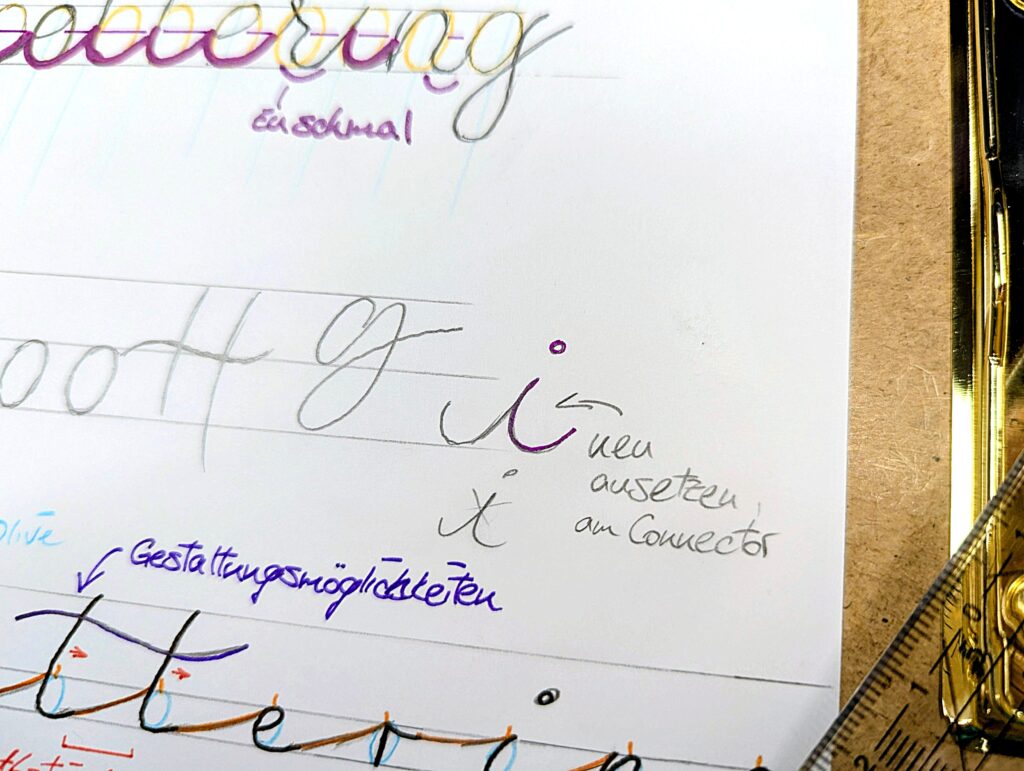 zu schmal
oottg
i
neu
ansetzen,
am Connector
i
Olive
Gestaltungsmöglichkeiten
tterin
0
1
2